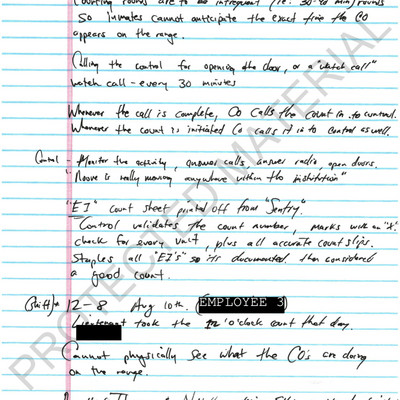 Counting rounds are to be infrequent (i.e. 30-40 min) rounds
so inmates cannot anticipate the exact time the CO
appears on the range.
Calling the control for opening the door, or a "watch call"
watch call - every 30 minutes
Whenever the call is complete, CO calls the count in to control.
Whenever the count is initiated Co calls it in to Central as well.
Control - Monitor the activity, answer calls, answer radio, open doors.
"None is really moving anywhere within the institution"
"E1" count sheet printed off from "Sentry".
Control validates the count number, marks with an "X"
check for every unit, plus all accurate count slips.
Staples all "E1's" so its documented then considered
a good count.
(Shift)* 12-8 Aug 10th. (EMPLOYEE 3)
Lieutenant took the 12 o'clock count that day.
Cannot physically see what the CO's are doing
on the range.
PROTECTED MATERIAL